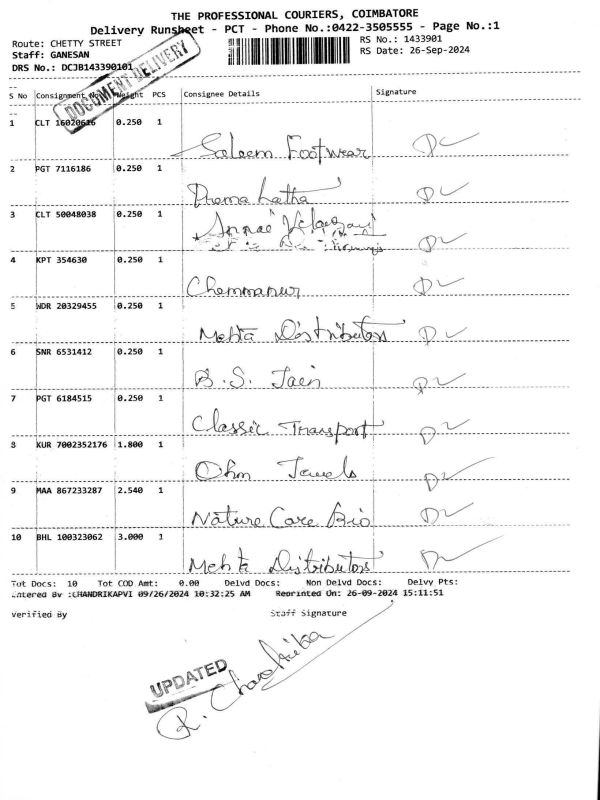 THE PROFESSIONAL COURIERS, COIMBATORE
Delivery Runsheet - PCT - Phone No.:0422-3505555 - Page No.:1
Route: CHETTY STREET
RS No.: 1433901
Staff: GANESAN
RS Date: 26-Sep-2024
DRS No.: DCJB143390101
DOCUMENT DELIVERY
S No Consignment No Weight PCS Consignee Details Signature
1 CLT 16020616 0.250 1 Saleem Footwear
2 PGT 7116186 0.250 1 Prema Latha
3 CLT 50048038 0.250 1 Annai
4 KPT 354630 0.250 1 Chemmanur
5 WDR 20329455 0.250 1 Mehta Distributors
6 SNR 6531412 0.250 1 B.S. Jain
7 PGT 6184515 0.250 1 Classic Transport
8 KUR 7002352176 1.800 1 Ohm Jewels
9 MAA 867233287 2.540 1 Nature Care Bio
10 BHL 100323062 3.000 1 Mehta Distributors
Tot Docs: 10 Tot COD Amt: 0.00 Delvd Docs: Non Delvd Docs: Delvy Pts:
Entered By :CHANDRIKAPVI 09/26/2024 10:32:25 AM Reprinted On: 26-09-2024 15:11:51
Verified By Staff Signature
UPDATED
R. Chandrika